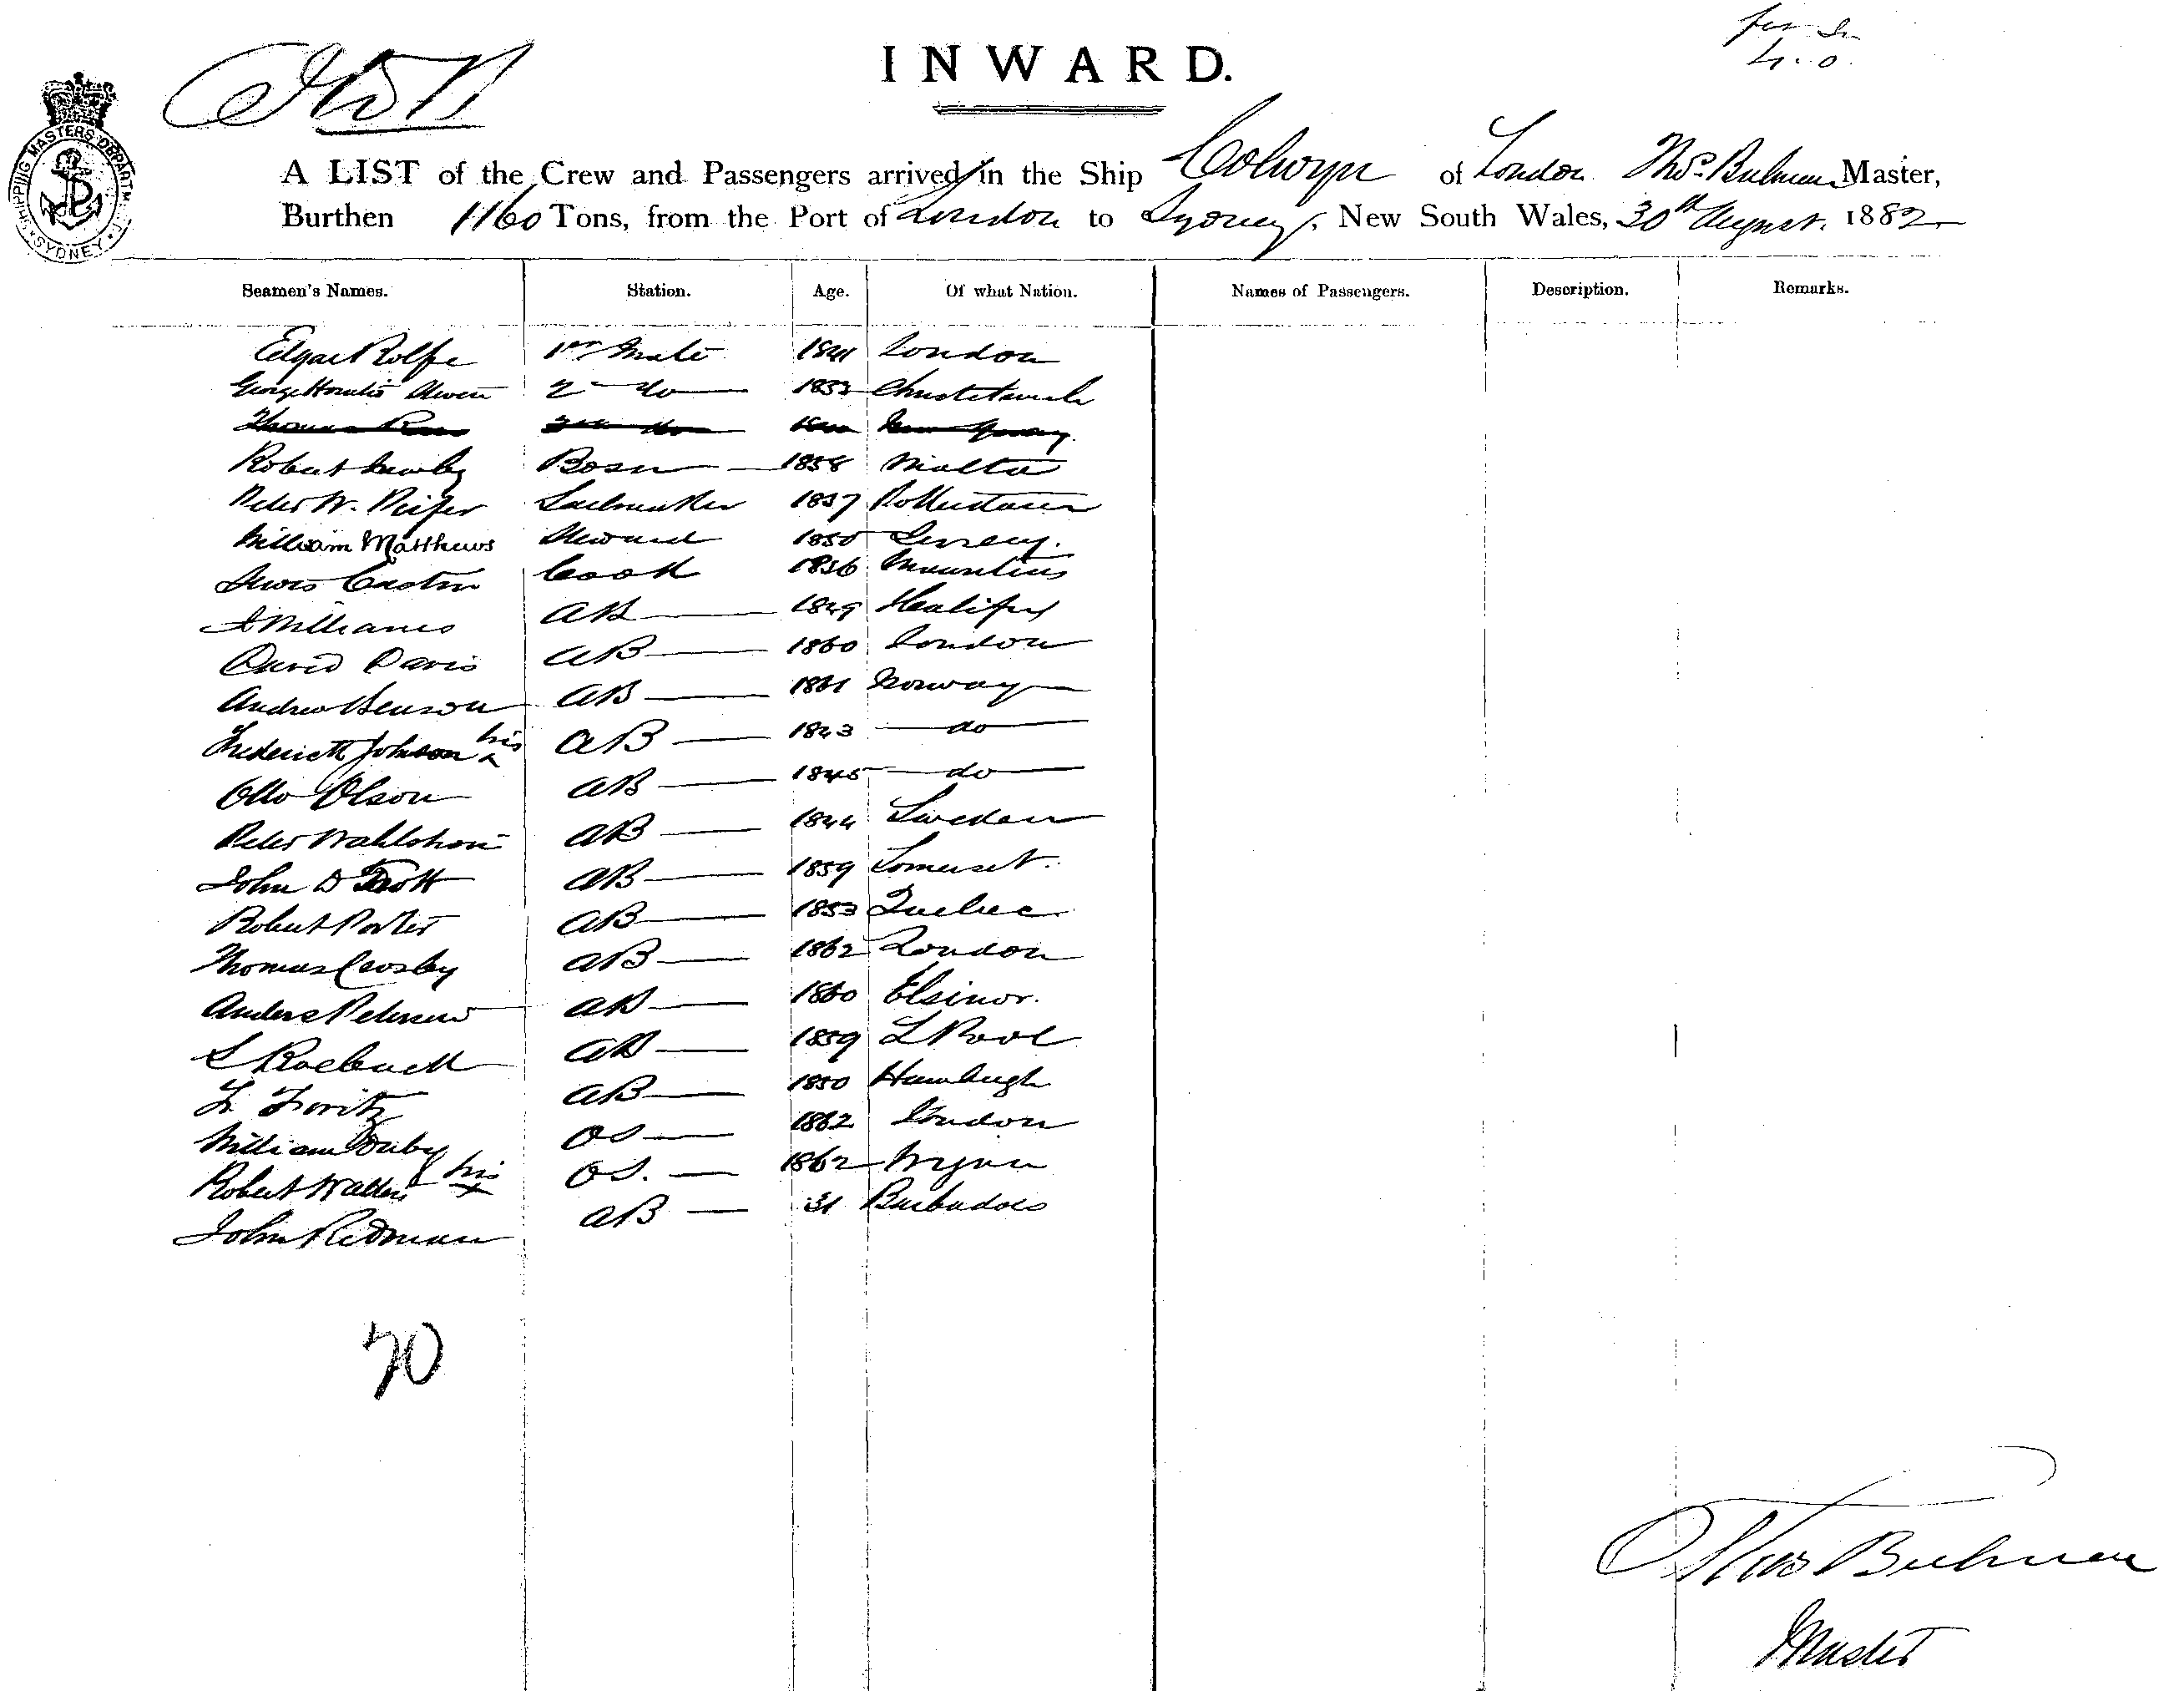 INWARD.
SHIPPING MASTERS DEPARTMT
SYDNEY
A LIST of the Crew and Passengers arrived in the Ship Colwyn of London Thos. Bulman Master,
Burthen 1160 Tons, from the Port of London to Sydney, New South Wales, 30th August. 1882
Seamen's Names. Station. Age. Of what Nation. Names of Passengers. Description. Remarks.
Edgar Rolfe 1st Mate 1841 London
George Horatio Owen 2 do 1853 Christchurch
Thomas
Robert 1858 Malta
Peter W. Sailmaker 1837
William Matthews Steward 1850 Jersey.
Cook 1856 Mauritius
Williams AB 1849 Halifax
David Davis AB 1860 London
Andrew Benson AB 1861 Norway
Frederick Johnson his x AB 1843 do
Otto Olson AB 1845 do
Peter AB 1844 Sweden
John D Trott AB 1859 Somerset.
Robert Porter AB 1853 Quebec
Thomas Crosby AB 1862 London
Anders Petersen AB 1860 Elsinor.
S Roebuck AB 1859 LPool
AB 1850 Hamburgh
William OS 1862 London
Robert Walters his x OS. 1862
John Redman AB 31 Barbadoes
20
Thos Bulman
Master